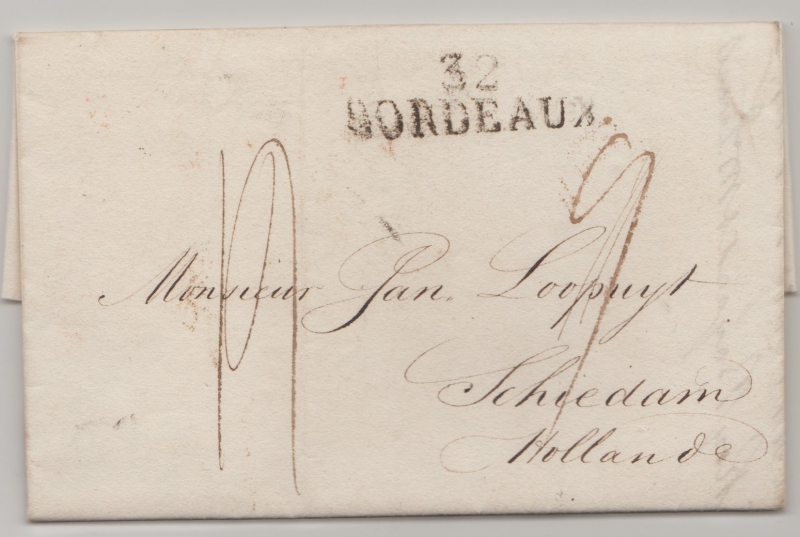 32
BORDEAUX.
Monsieur Jan. Loopuyt
Schiedam
Hollande